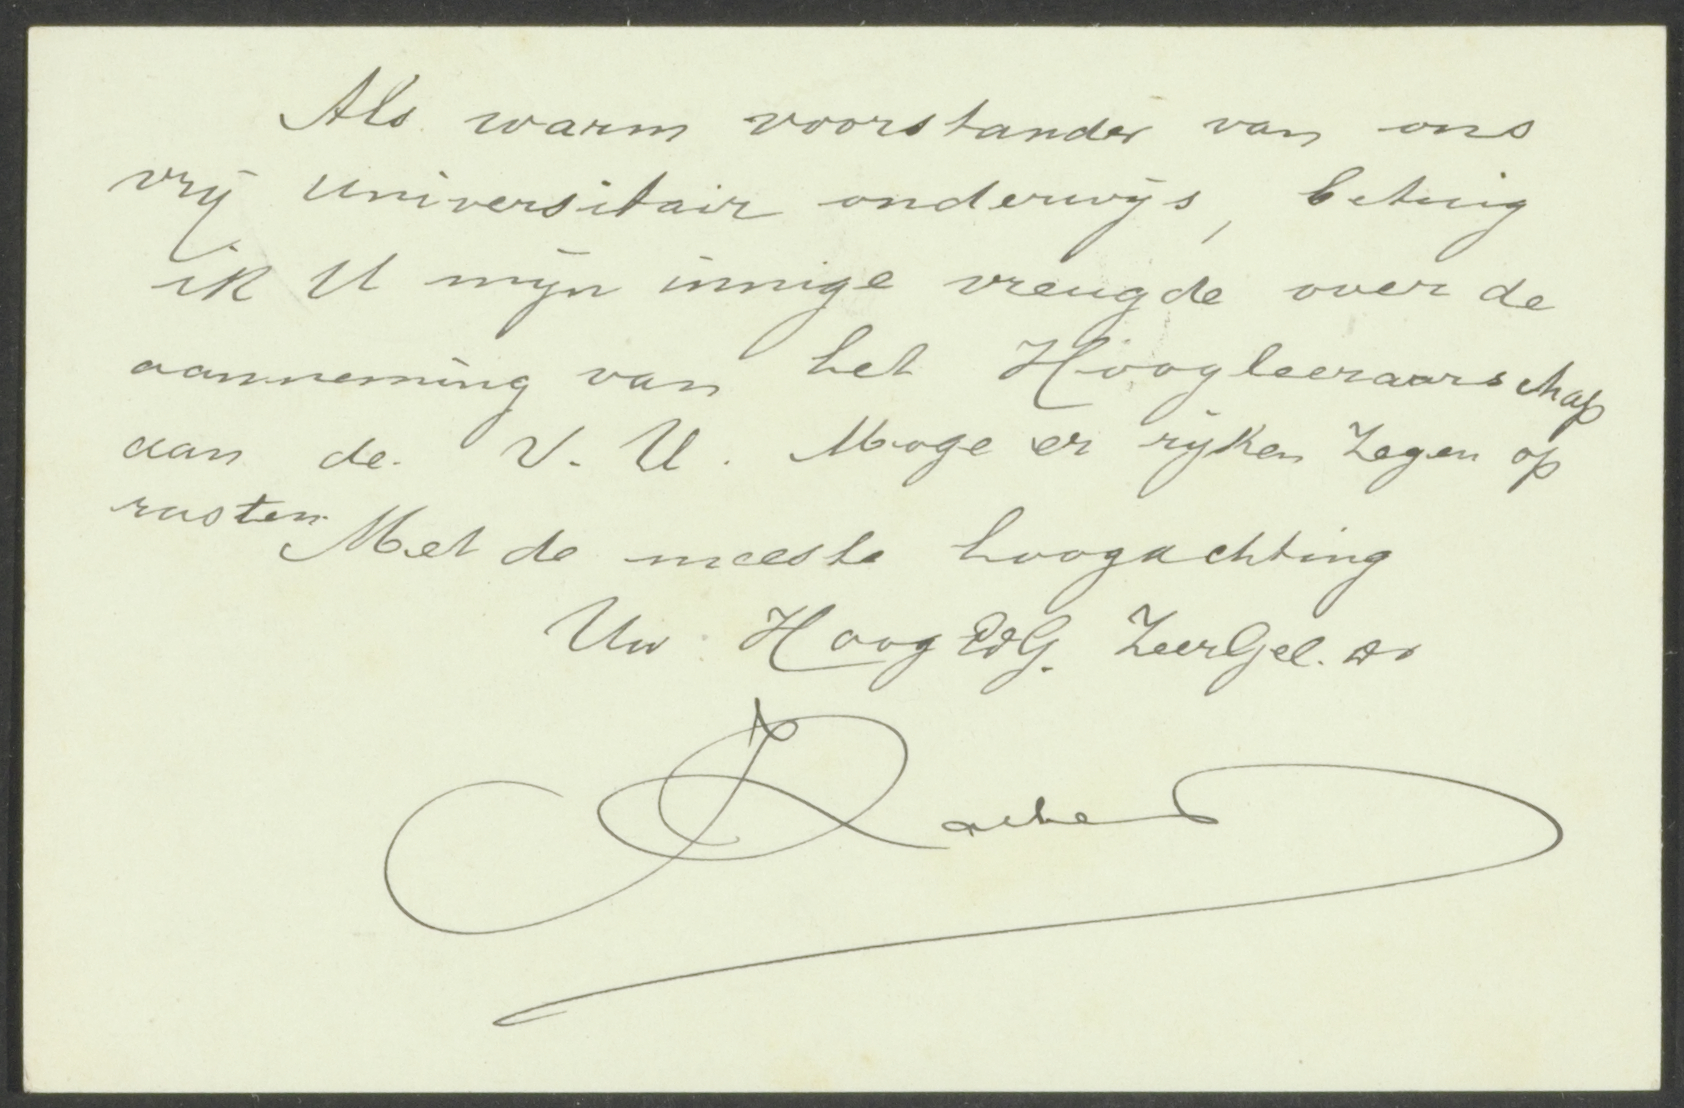 Als warm voorstander van ons
vrij universitair onderwijs, betuig
ik U mijn innige vreugde over de
aanneming van het Hoogleeraarschap
aan de V. U. Moge er rijken zegen op
rusten.
Met de meeste hoogachting
Uw HoogEdG. ZeerGel. Dr